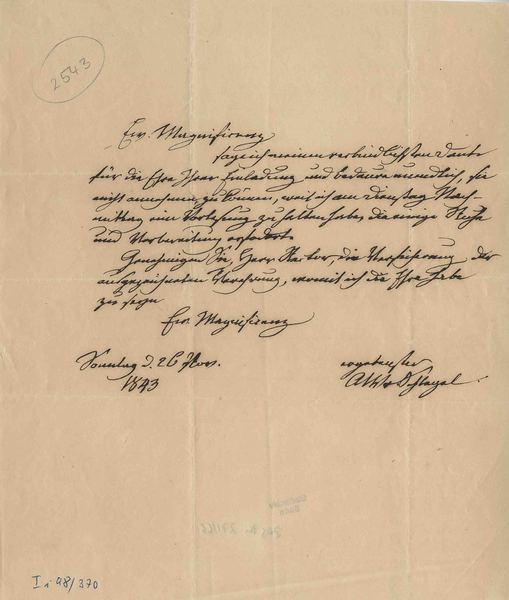 2543
Ew. Magnificenz
sage ich meinen verbindlichsten Dank
für die Ehre Ihrer Einladung und bedaure unendlich, sie
nicht annehmen zu können, weil ich am Dienstag Nach-
mittag eine Vorlesung zu halten habe, die einige Ruhe
und Vorbereitung erfordert.
Genehmigen Sie, Herr Rector, die Versicherung der
ausgezeichneten Verehrung, womit ich die Ehre habe
zu seyn
Ew. Magnificenz
Sonntag d. 26 Nov.
1843
ergebenster
AWvSchlegel
Stadtarchiv
Bonn
I i 98/370